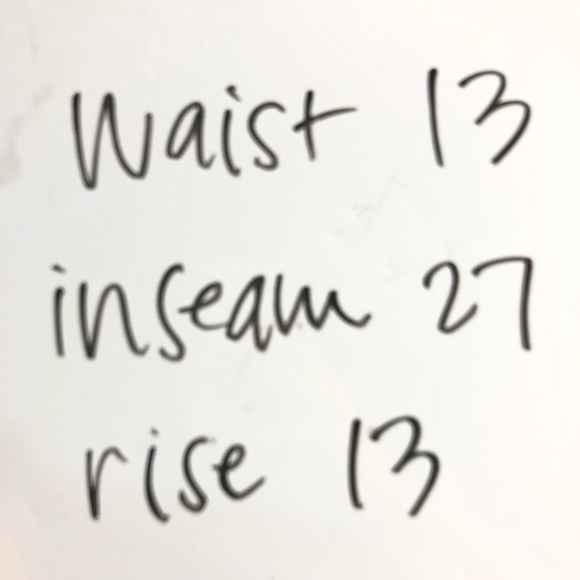 Waist 13
inseam 27
rise 13